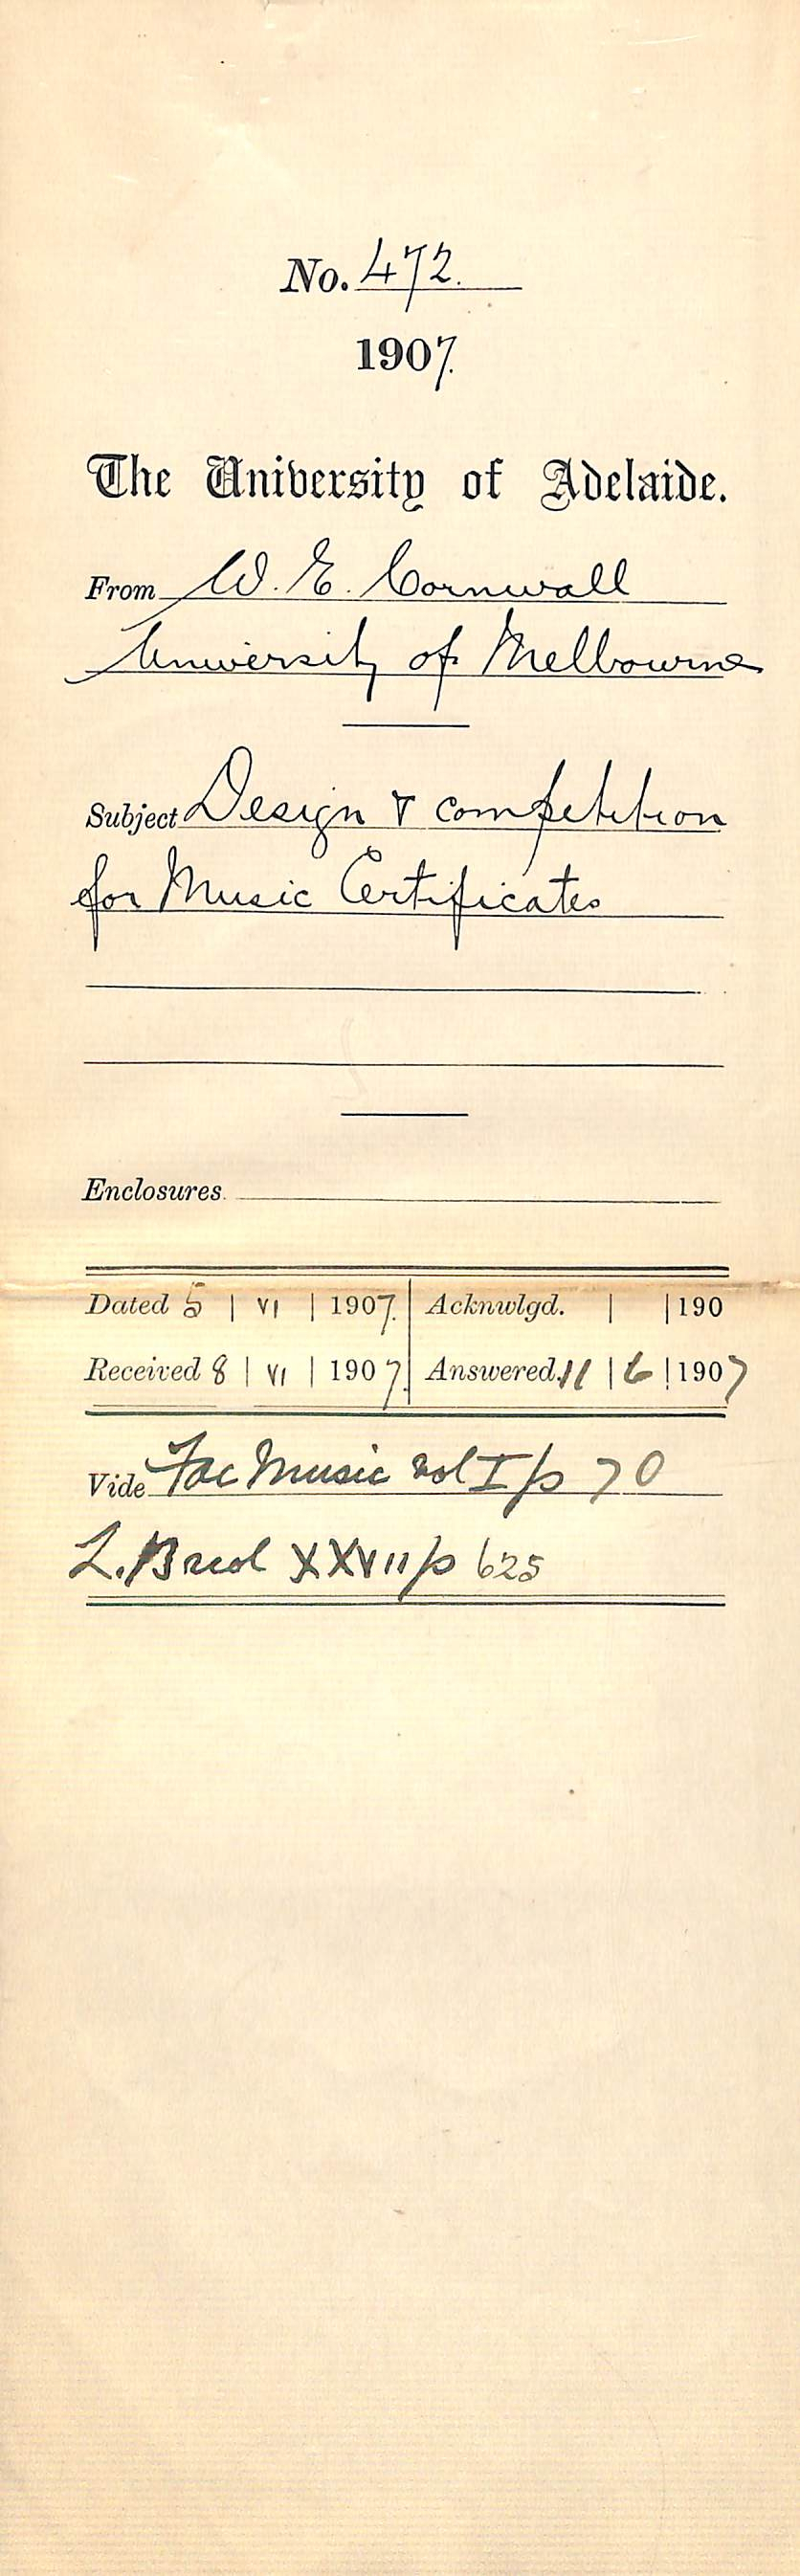 No. 472.
1907.
The University of Adelaide.
From W. E. Cornwall
University of Melbourne
Subject Design & competition
for Music Certificates
Enclosures.
Dated 5 | VI | 1907. Acknwlgd. | | 190
Received 8 | VI | 1907. Answered. 11 | 6 | 1907
Vide Fac Music vol I p 70
L. XXVII p 625